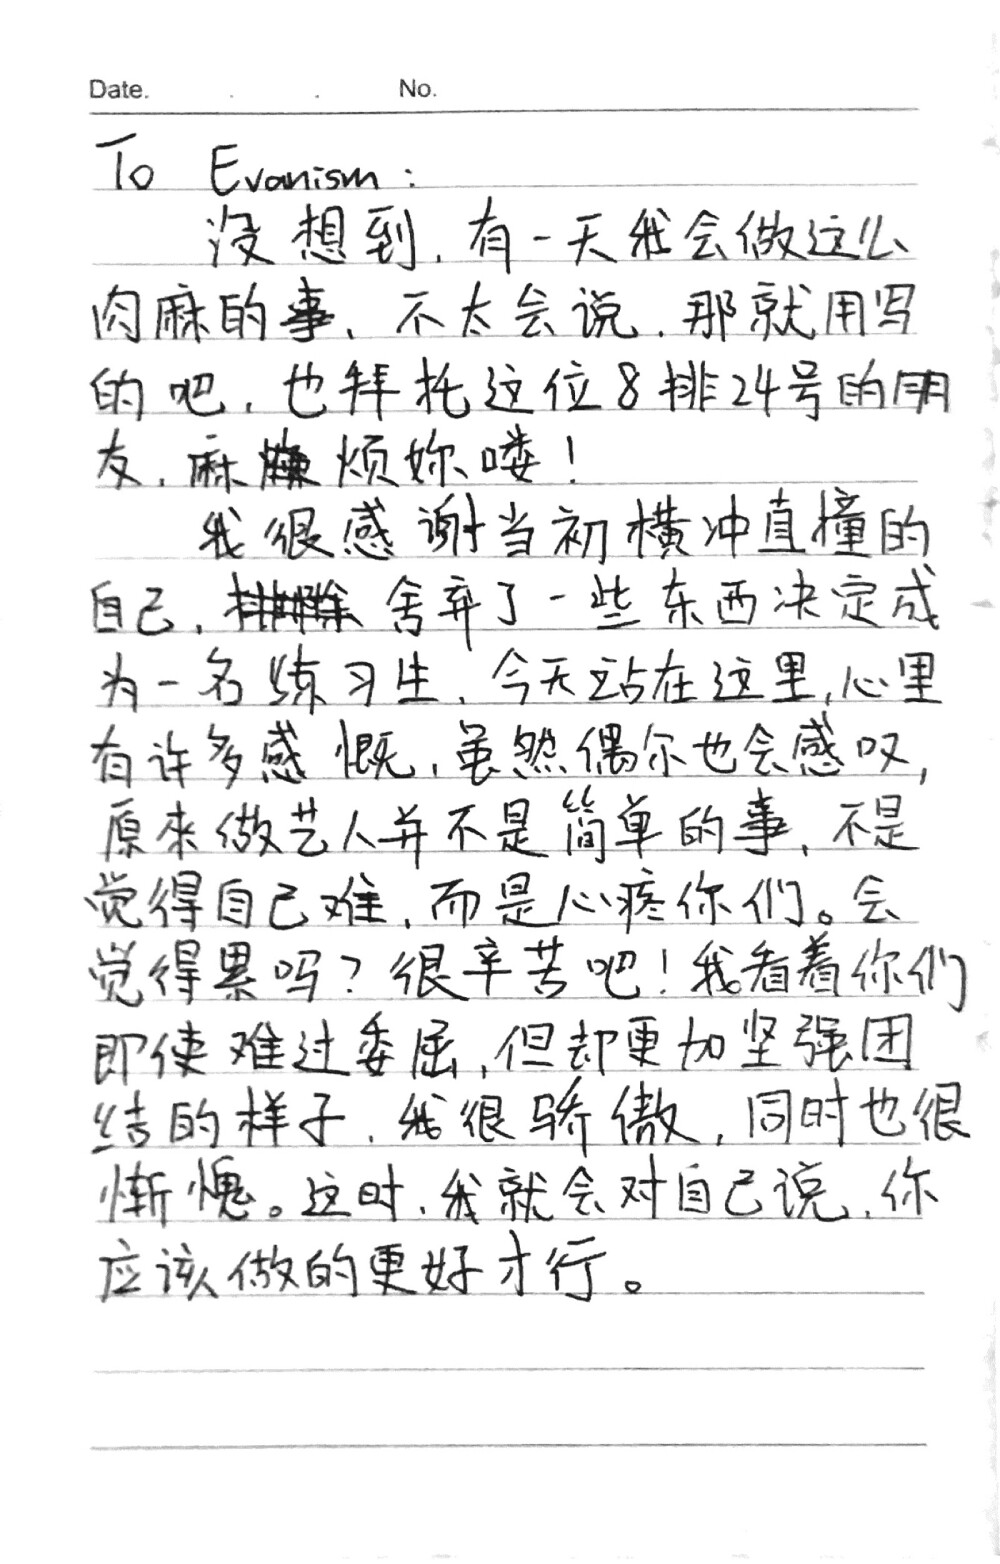 Date. No.
To Evanism:
没想到,有一天我会做这么
肉麻的事、不太会说,那就用写
的吧,也拜托这位8排24号的朋
友,麻烦妳喽!
我很感谢当初横冲直撞的
自己,舍弃了一些东西决定成
为一名练习生,今天站在这里,心里
有许多感慨,虽然偶尔也会感叹,
原来做艺人并不是简单的事,不是
觉得自己难,而是心疼你们。会
觉得累吗?很辛苦吧!我看着你们
即使难过委屈,但却更加坚强团
结的样子,我很骄傲,同时也很
惭愧。这时,我就会对自己说,你
应该做的更好才行。